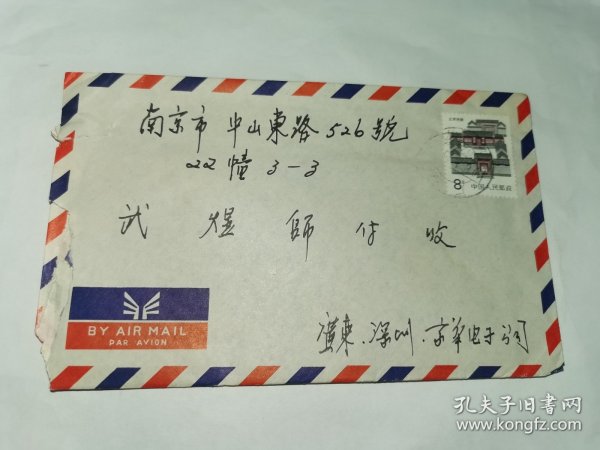 南京市 中山東路 526號
22幢 3-3
武 煜 師 付 收
8分 中国人民邮政
BY AIR MAIL
PAR AVION
廣東、深圳、京华电子公司
孔夫子旧书网
www.kongfz.com